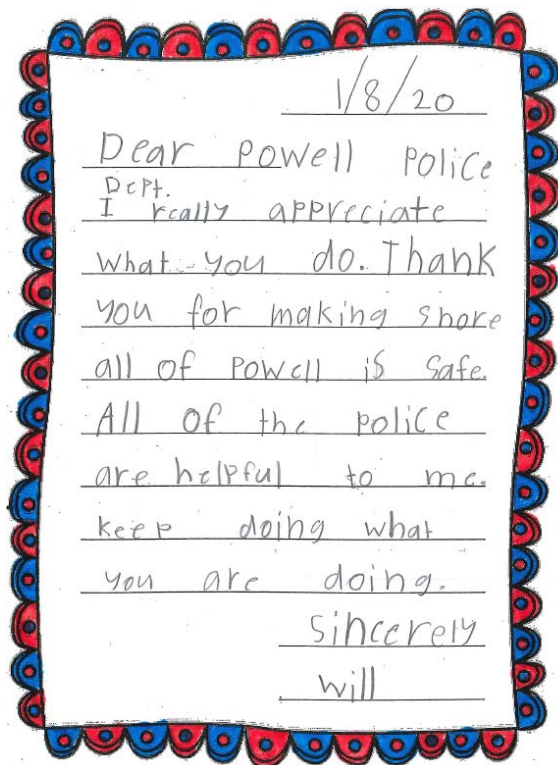 1/8/20
Dear Powell Police
Dept.
I really appreciate
what you do. Thank
you for making shore
all of Powell is safe.
All of the police
are helpful to me.
keep doing what
you are doing.
Sincerely
will